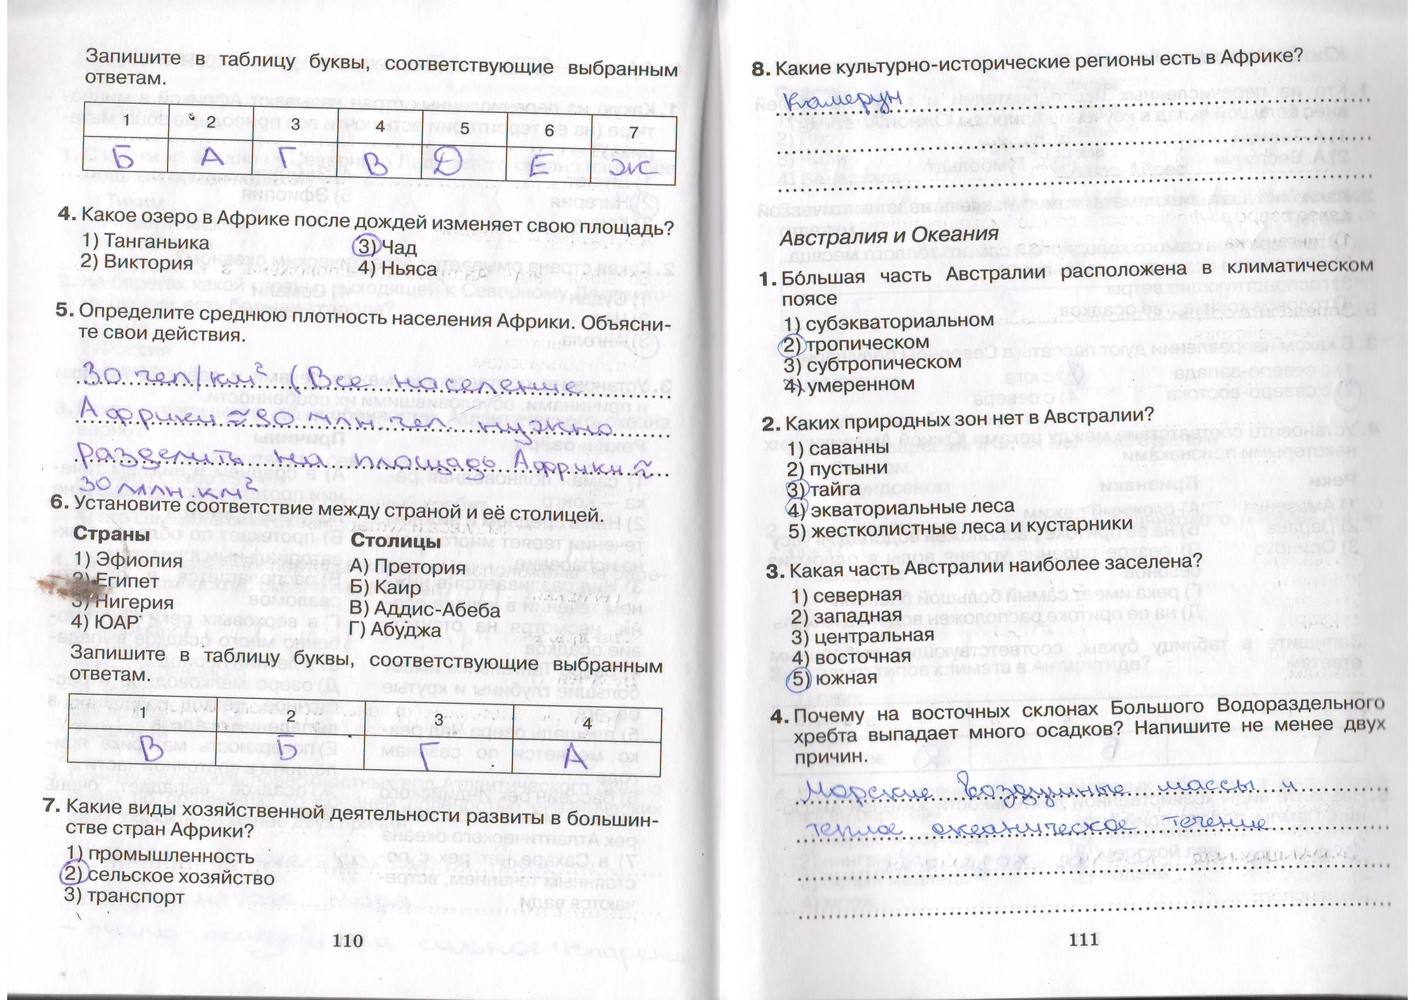 Запишите в таблицу буквы, соответствующие выбранным
ответам.
1 2 3 4 5 6 7
Б А Г В Д Е Ж
4. Какое озеро в Африке после дождей изменяет свою площадь?
1) Танганьика 3) Чад
2) Виктория 4) Ньяса
5. Определите среднюю плотность населения Африки. Объясни-
те свои действия.
30 чел/км² (Все население
Африки ≈ 90 млн. чел. нужно
разделить на площадь Африки ≈
30 млн. км²
6. Установите соответствие между страной и её столицей.
Страны Столицы
1) Эфиопия А) Претория
2) Египет Б) Каир
3) Нигерия В) Аддис-Абеба
4) ЮАР Г) Абуджа
Запишите в таблицу буквы, соответствующие выбранным
ответам.
1 2 3 4
В Б Г А
7. Какие виды хозяйственной деятельности развиты в большин-
стве стран Африки?
1) промышленность
2) сельское хозяйство
3) транспорт
110
8. Какие культурно-исторические регионы есть в Африке?
Камерун
Австралия и Океания
1. Бо́льшая часть Австралии расположена в климатическом
поясе
1) субэкваториальном
2) тропическом
3) субтропическом
4) умеренном
2. Каких природных зон нет в Австралии?
1) саванны
2) пустыни
3) тайга
4) экваториальные леса
5) жестколистные леса и кустарники
3. Какая часть Австралии наиболее заселена?
1) северная
2) западная
3) центральная
4) восточная
5) южная
4. Почему на восточных склонах Большого Водораздельного
хребта выпадает много осадков? Напишите не менее двух
причин.
Морские воздушные массы и
теплое океаническое течение
111